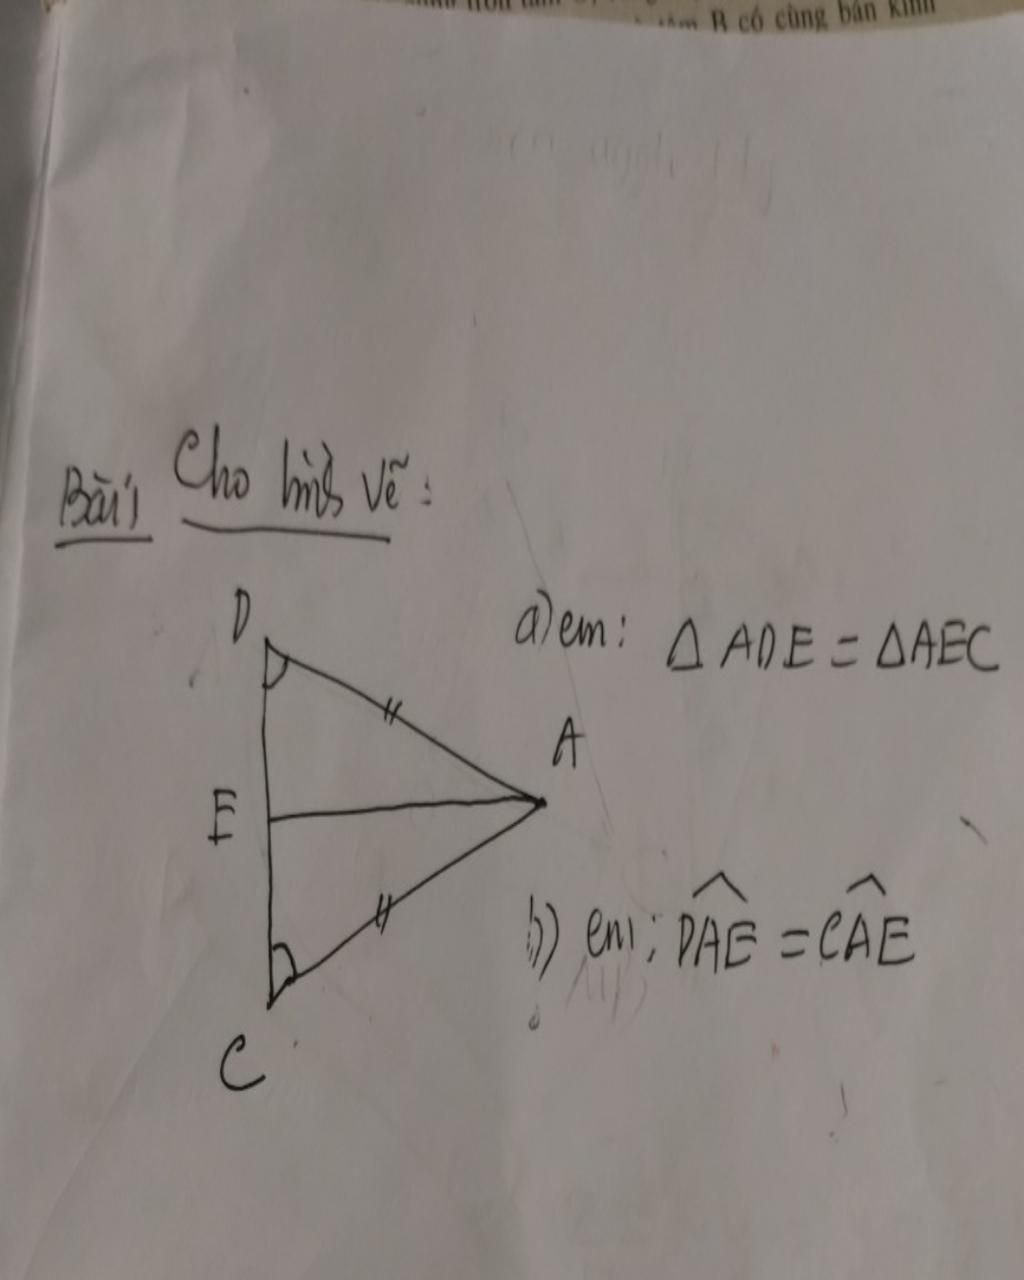 B có cùng bán kính
Bài 1 Cho hình vẽ:
D
a) cm: Δ ADE = ΔAEC
A
E
b) cm: DAE = CAE
C